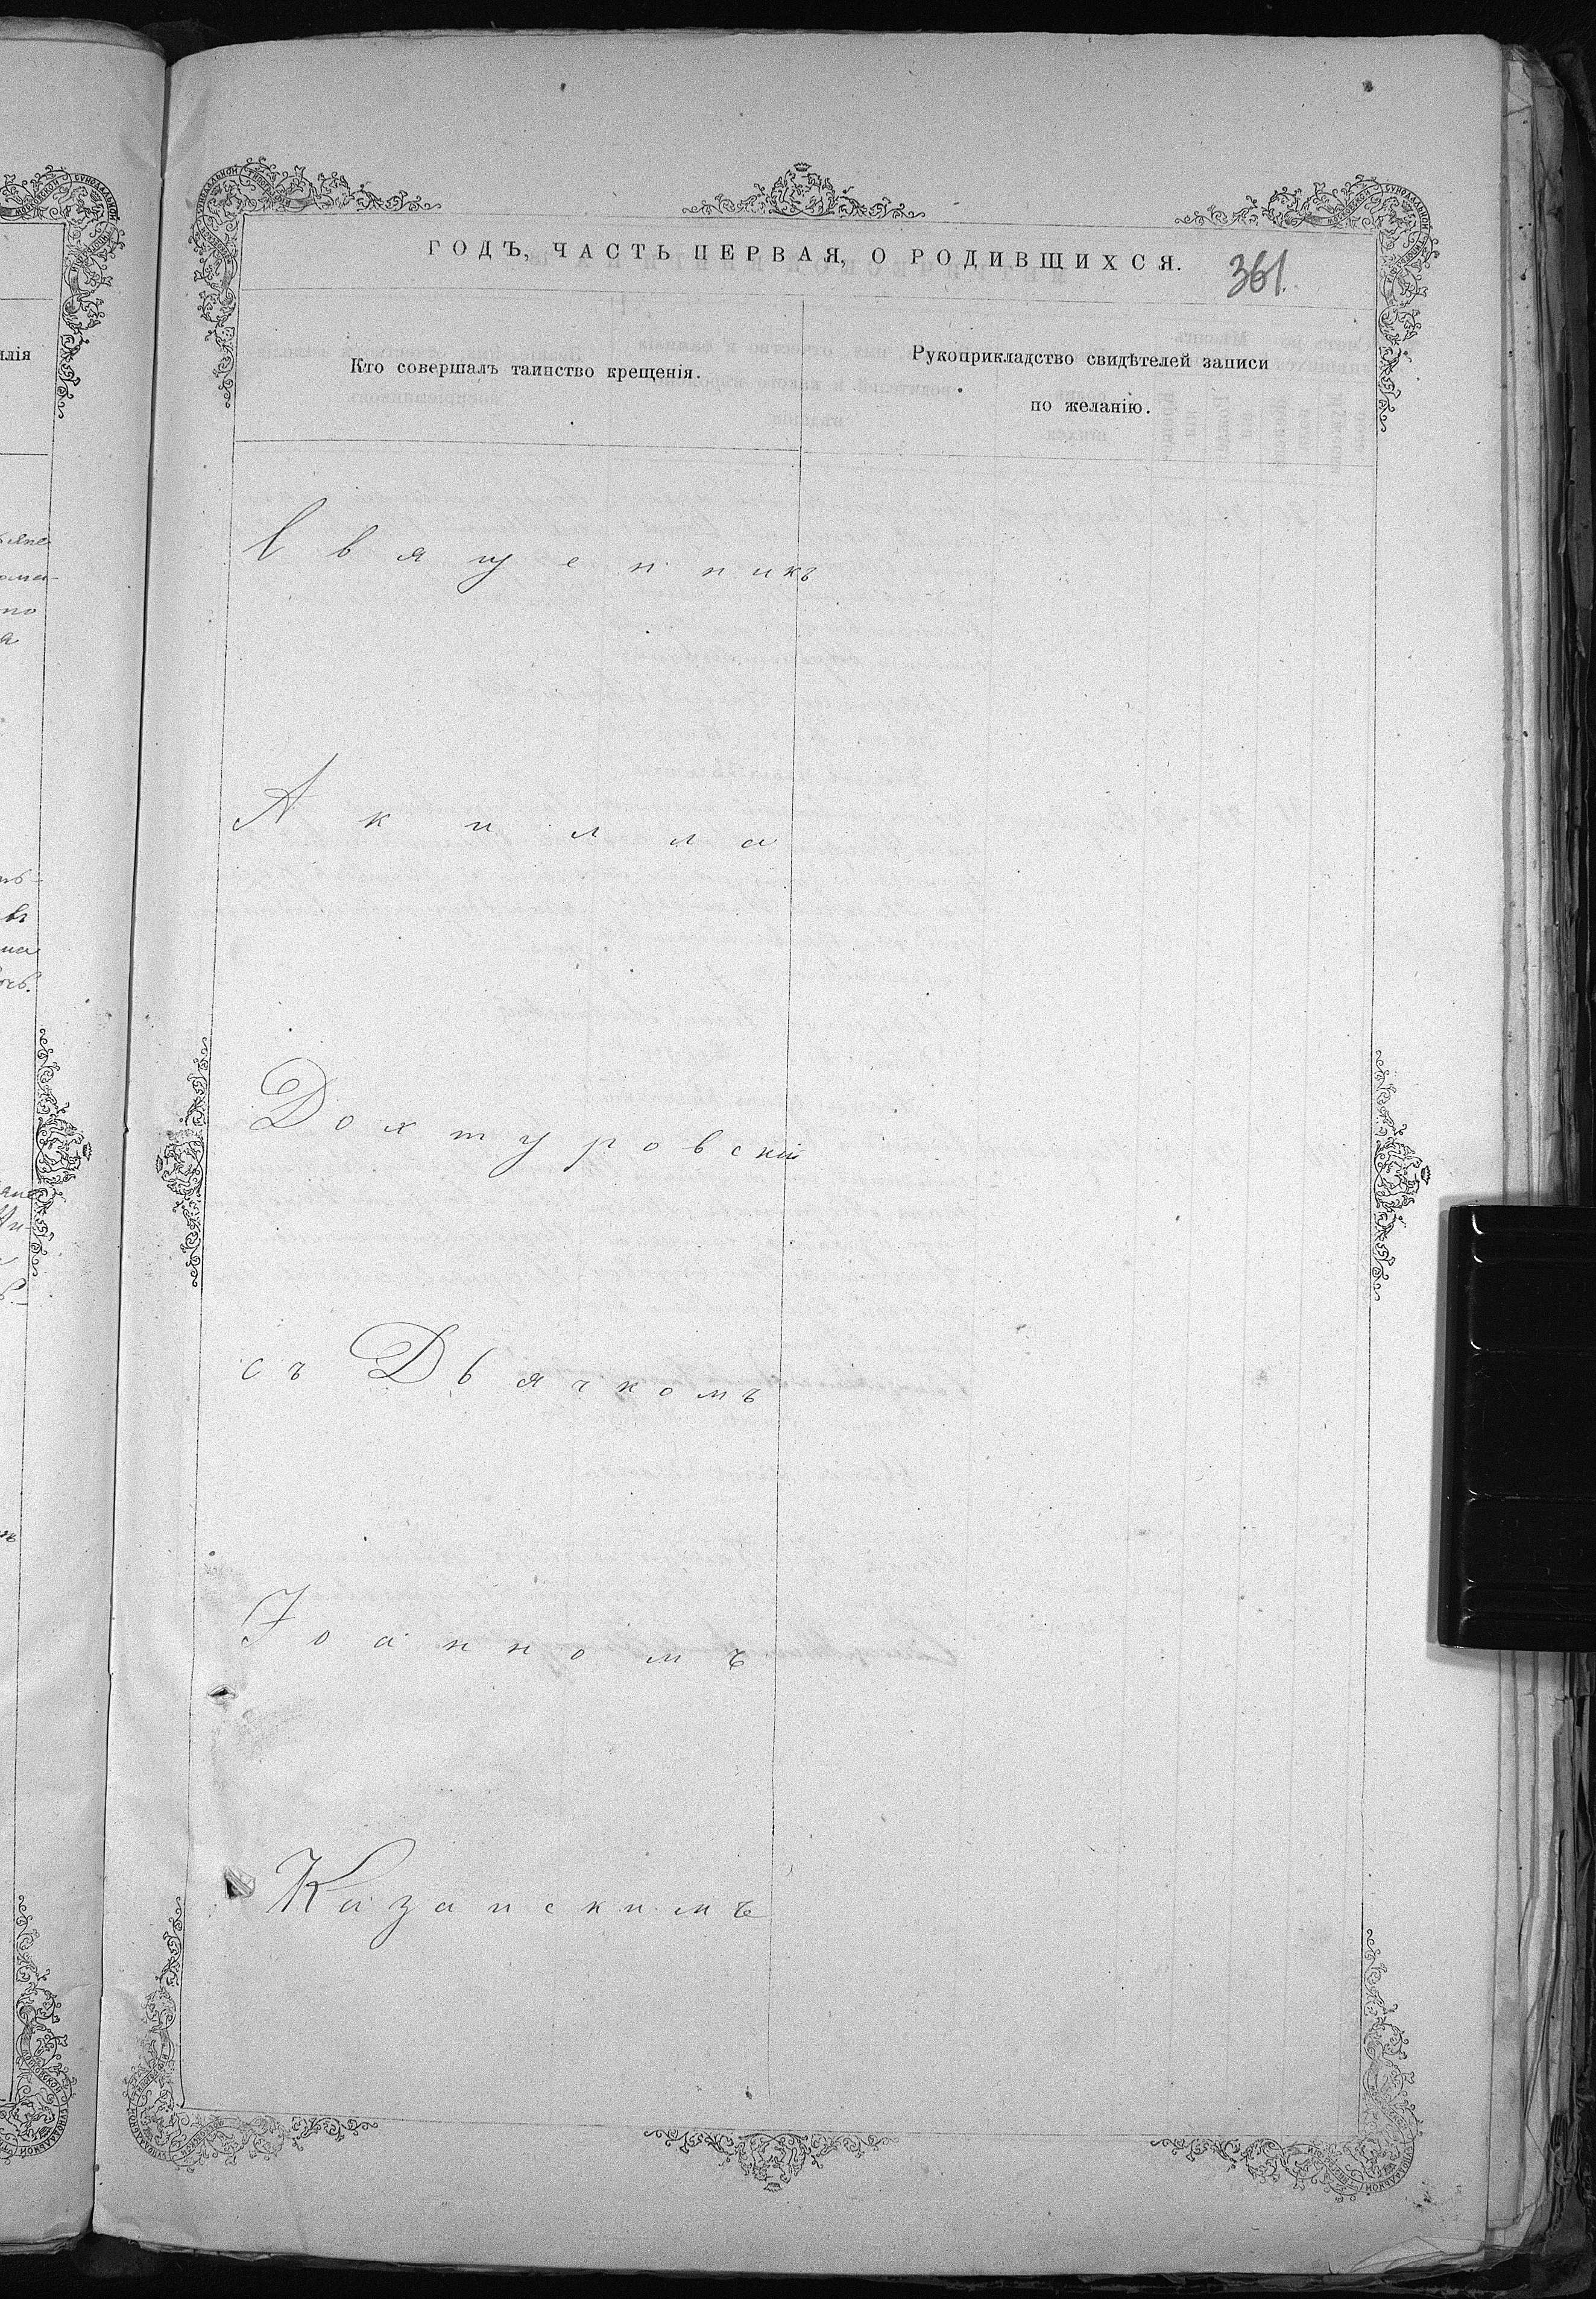 ГОДЪ, ЧАСТЬ ПЕРВАЯ, О РОДИВШИХСЯ.
361.
Кто совершалъ таинство крещенія.
Рукоприкладство свидѣтелей записи
по желанію.
Священникъ
Акилла
Дохтуровскій
съ Дьячкомъ
Іоанномъ
Казанскимъ